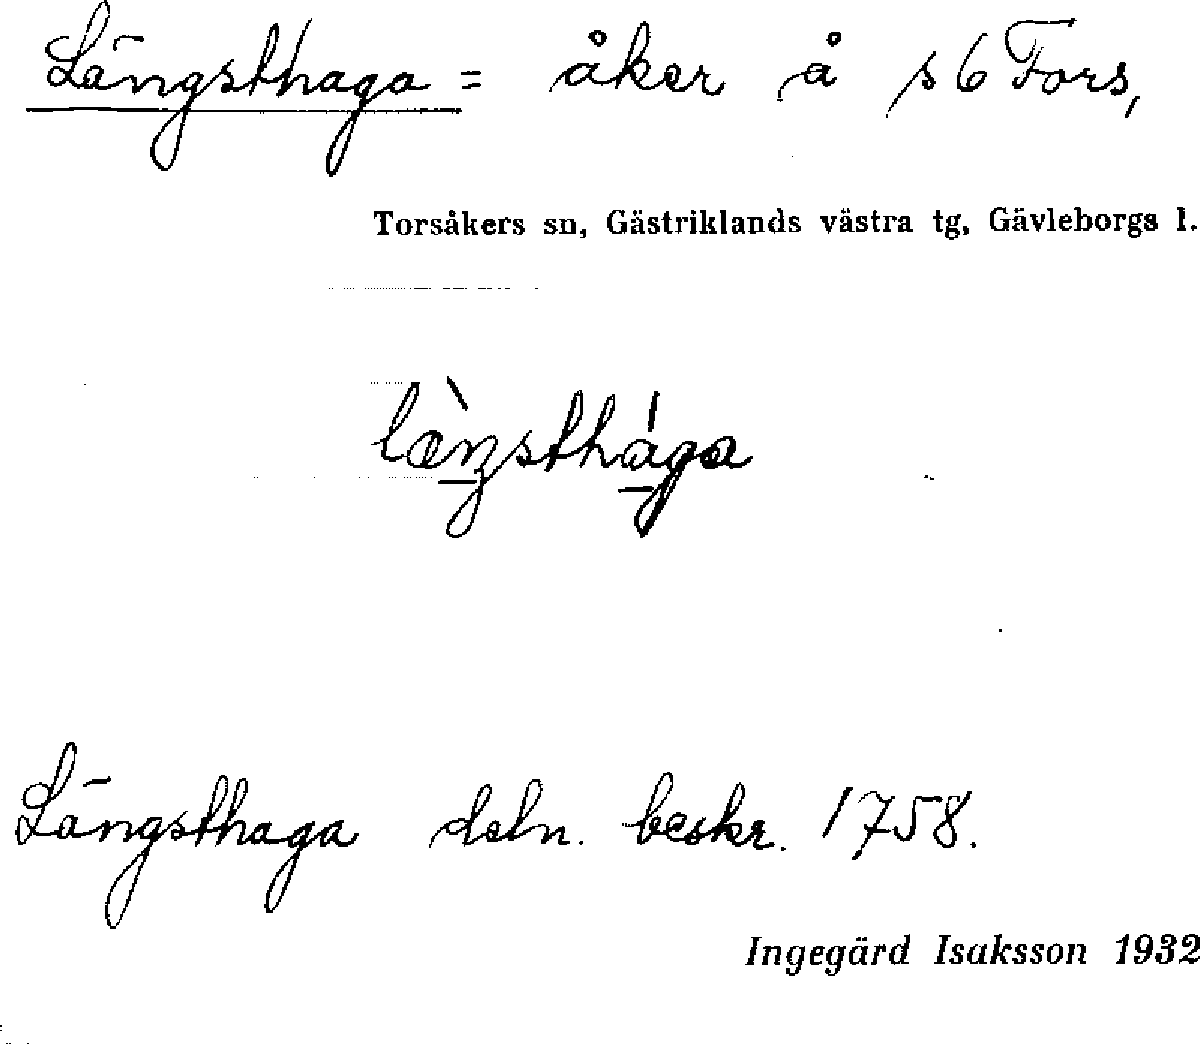 Längsthaga = åker å s6 Fors,
Torsåkers sn, Gästriklands västra tg, Gävleborgs l.
læ̀ŋsthága
Längsthaga deln. beskr. 1758.
Ingegärd Isaksson 1932